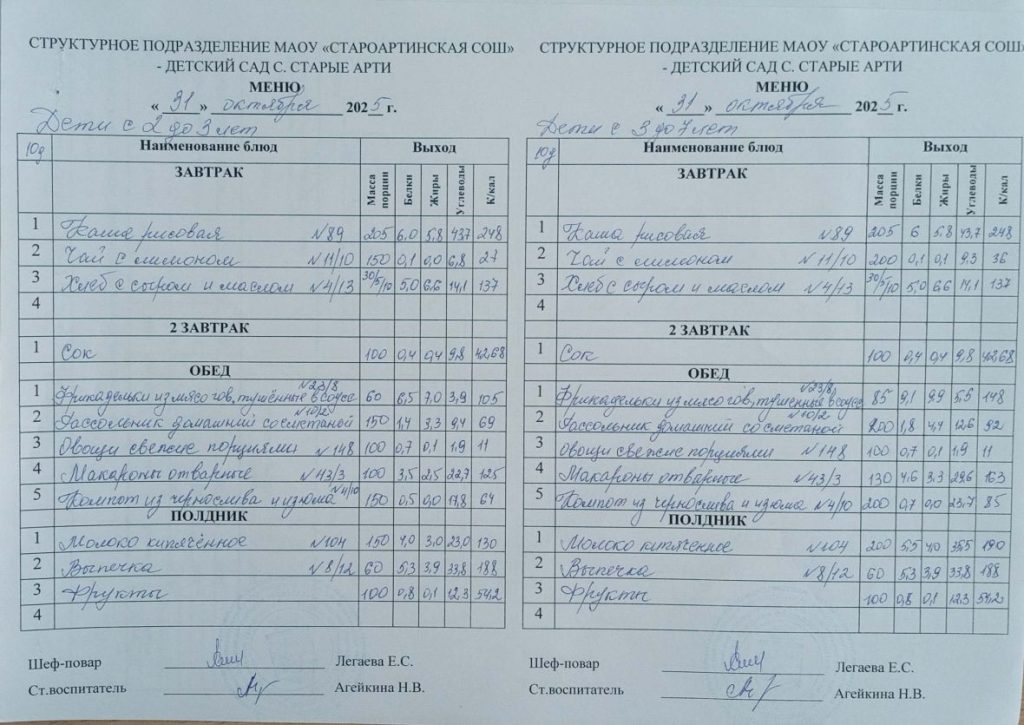 СТРУКТУРНОЕ ПОДРАЗДЕЛЕНИЕ МАОУ «СТАРОАРТИНСКАЯ СОШ»
- ДЕТСКИЙ САД С. СТАРЫЕ АРТИ
МЕНЮ
« 31 » октября 2025 г.
Дети с 2 до 3 лет
10д Наименование блюд Выход
ЗАВТРАК Масса порции Белки Жиры Углеводы К/кал
1 Каша рисовая №89 205 6,0 5,8 43,7 248
2 Чай с лимоном №11/10 150 0,1 0,0 6,8 27
3 Хлеб с сыром и маслом №4/13 30/5/10 5,0 6,6 14,1 137
4
2 ЗАВТРАК
1 Сок 100 0,4 0,4 9,8 42,68
ОБЕД
1 Фрикадельки из мяса гов, тушённые в соусе №23/8 60 6,5 7,0 3,9 105
2 Рассольник домашний со сметаной №10/2 150 1,4 3,3 9,4 69
3 Овощи свежие порциями №148 100 0,7 0,1 1,9 11
4 Макароны отварные №43/3 100 3,5 2,5 22,7 125
5 Компот из чернослива и изюма №4/10 150 0,5 0,0 17,8 64
ПОЛДНИК
1 Молоко кипячённое №104 150 4,0 3,0 23,0 130
2 Выпечка №8/12 60 5,3 3,9 33,8 188
3 Фрукты 100 0,8 0,1 12,3 54,2
4
Шеф-повар Легаева Е.С.
Ст.воспитатель Агейкина Н.В.
СТРУКТУРНОЕ ПОДРАЗДЕЛЕНИЕ МАОУ «СТАРОАРТИНСКАЯ СОШ»
- ДЕТСКИЙ САД С. СТАРЫЕ АРТИ
МЕНЮ
« 31 » октября 2025 г.
Дети с 3 до 7 лет
10д Наименование блюд Выход
ЗАВТРАК Масса порции Белки Жиры Углеводы К/кал
1 Каша рисовая №89 205 6 5,8 43,7 248
2 Чай с лимоном №11/10 200 0,1 0,1 9,3 36
3 Хлеб с сыром и маслом №4/13 30/5/10 5,0 6,6 14,1 137
4
2 ЗАВТРАК
1 Сок 100 0,4 0,4 9,8 42,68
ОБЕД
1 Фрикадельки из мяса гов, тушенные в соусе №23/8 85 9,1 9,9 5,5 148
2 Рассольник домашний со сметаной №10/2 200 1,8 4,4 12,6 92
3 Овощи свежие порциями №148 100 0,7 0,1 1,9 11
4 Макароны отварные №43/3 130 4,6 3,3 29,6 163
5 Компот из чернослива и изюма №4/10 200 0,7 0,0 23,7 85
ПОЛДНИК
1 Молоко кипяченное №104 200 5,5 4,0 35,5 190
2 Выпечка №8/12 60 5,3 3,9 33,8 188
3 Фрукты 100 0,8 0,1 12,3 54,2
4
Шеф-повар Легаева Е.С.
Ст.воспитатель Агейкина Н.В.